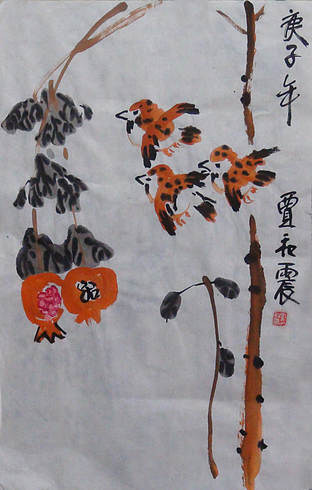 庚子年
賈和震